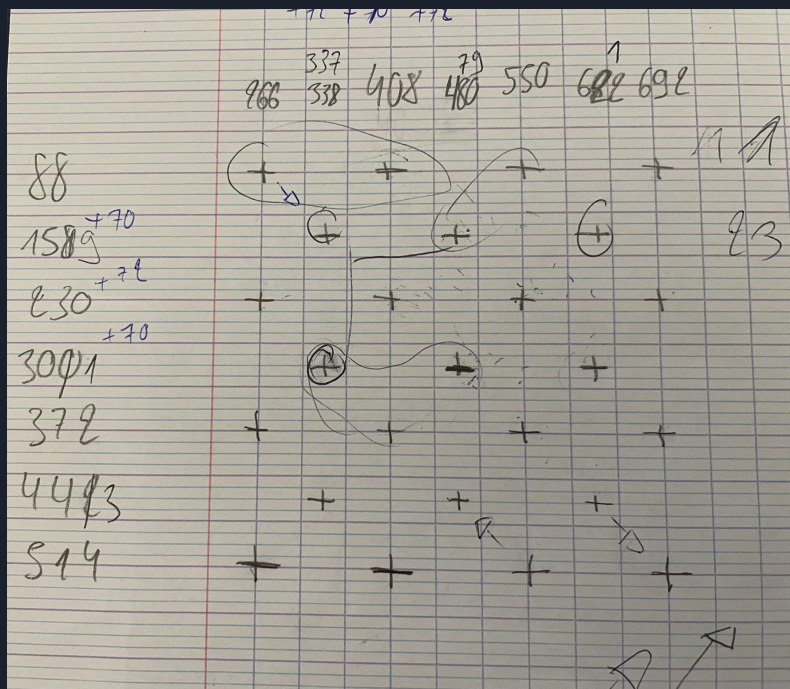 +72 +70 +72
337 79 1
266 338 408 480 550 622 692
88 11
1589 +70 23
230 +72
3001 +70
372
4423
514